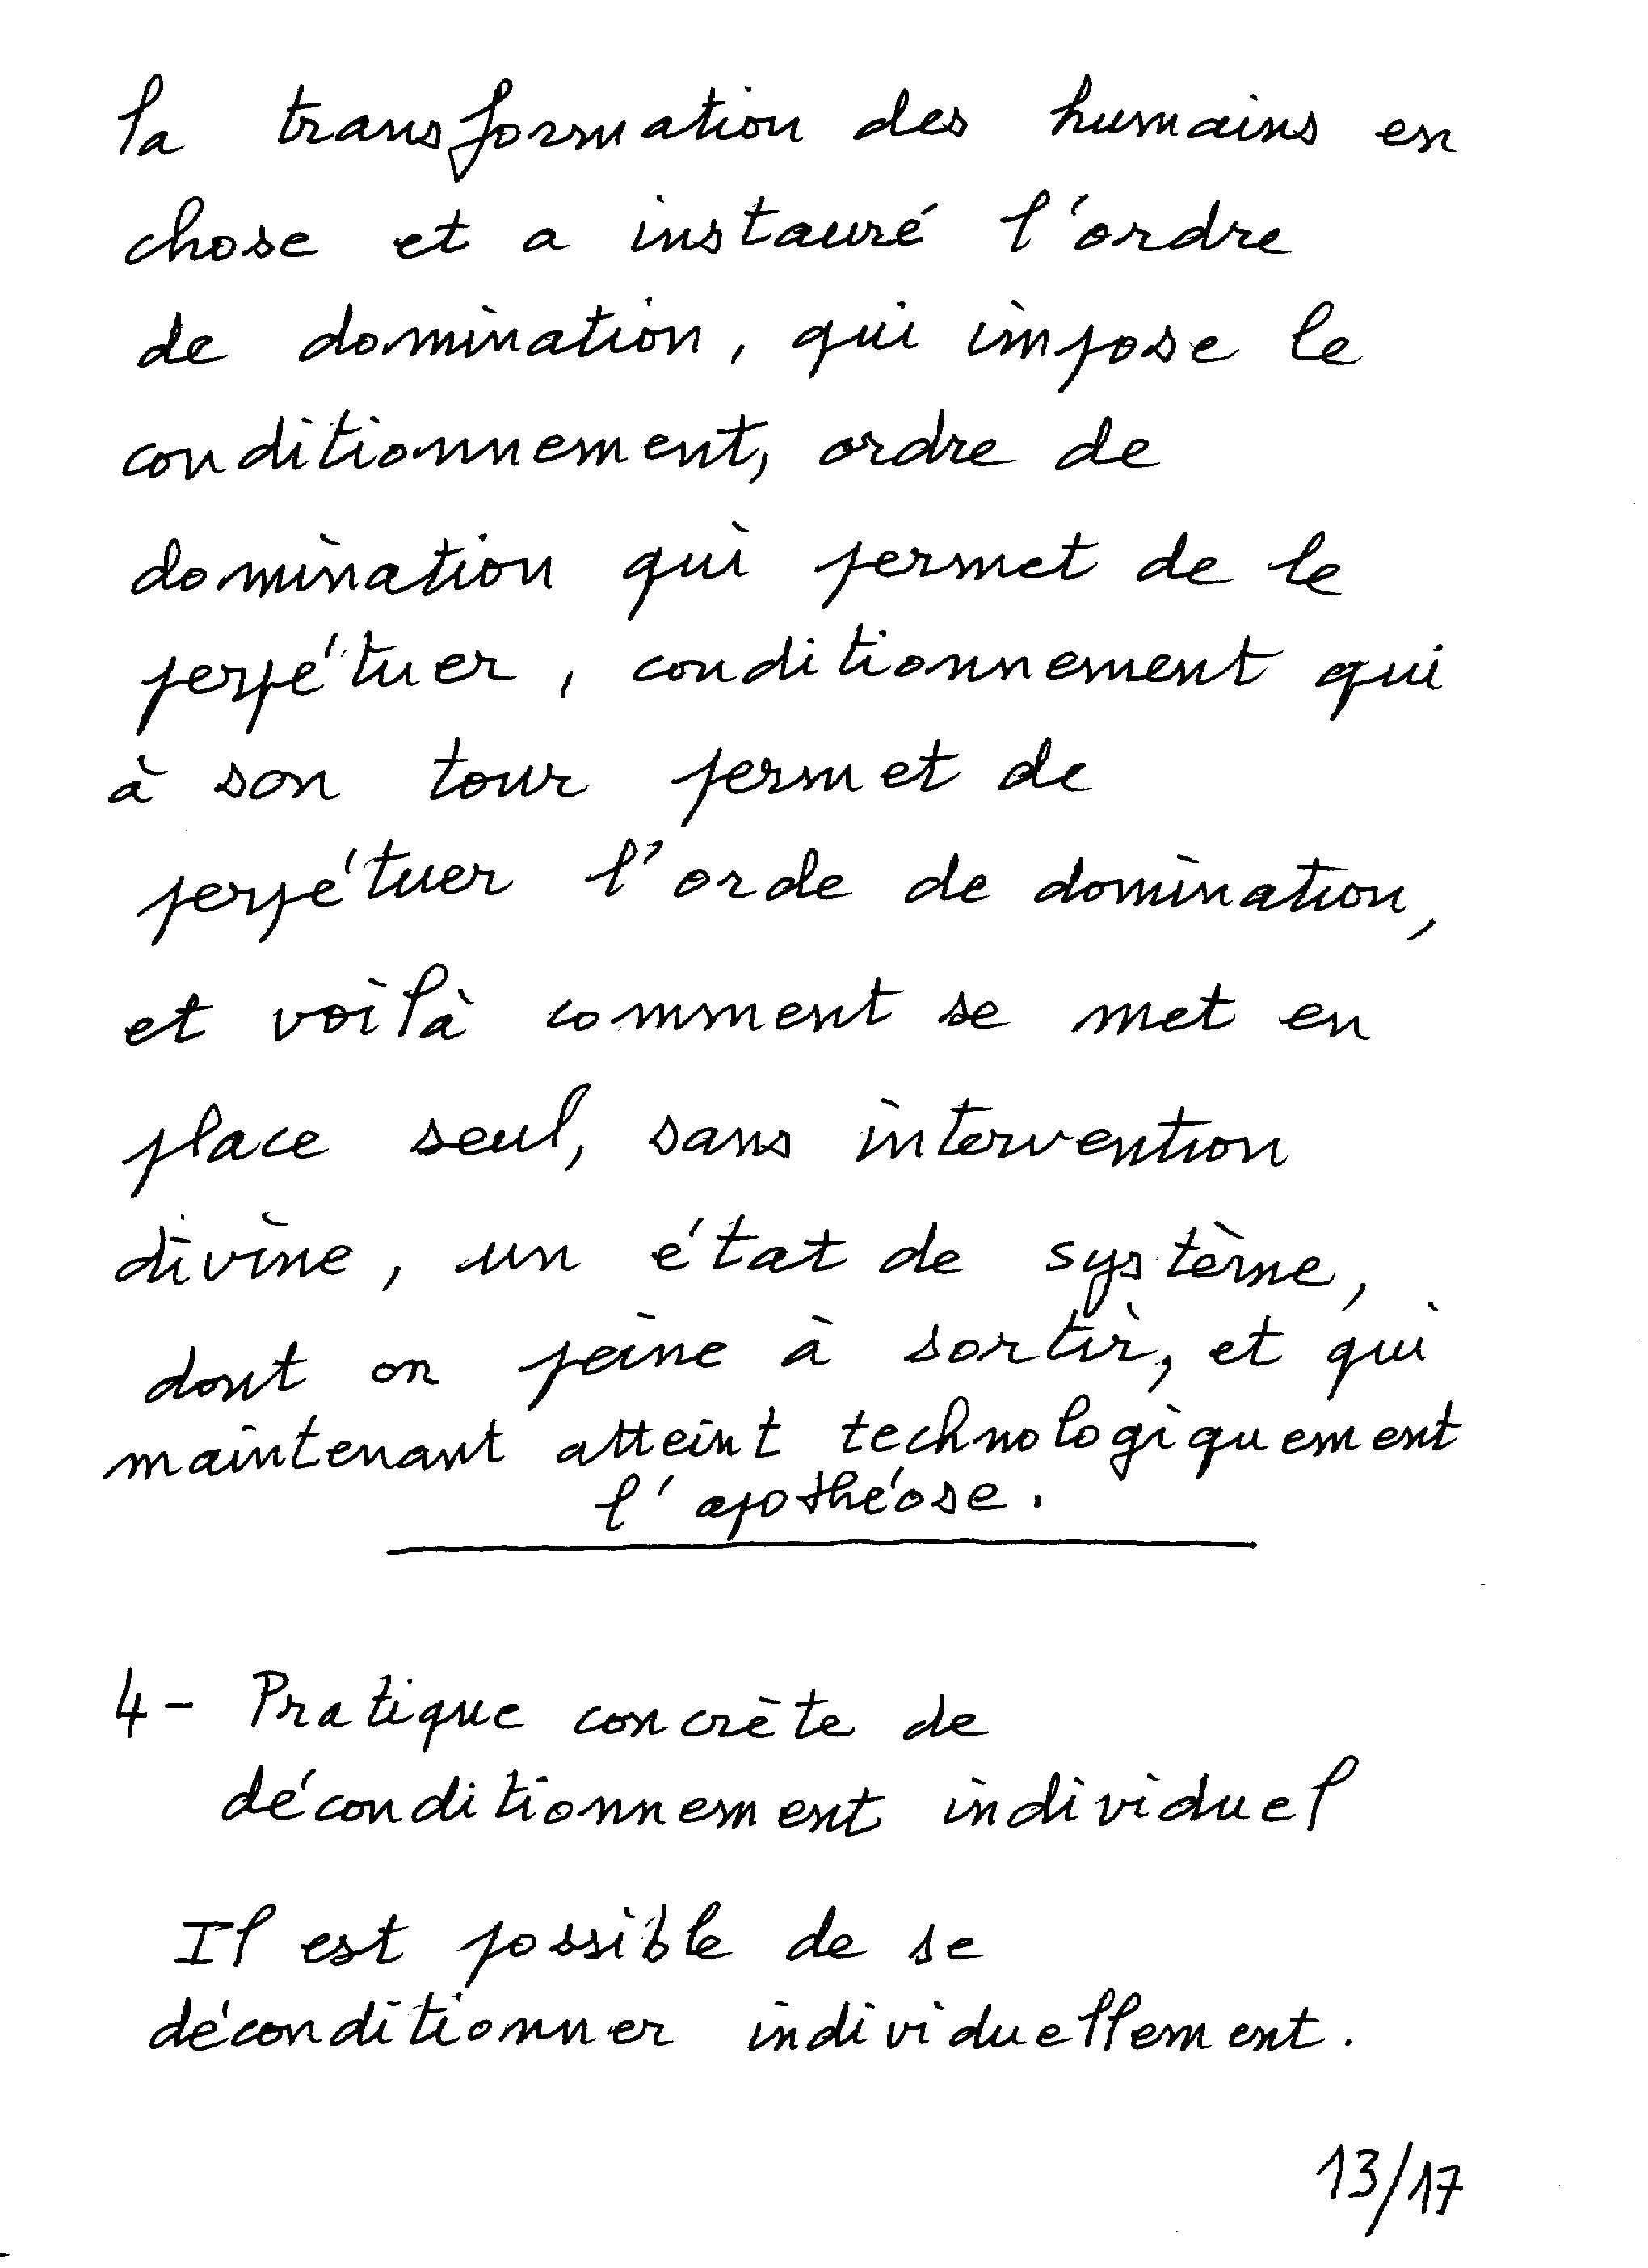 la transformation des humains en
chose et a instauré l'ordre
de domination, qui impose le
conditionnement, ordre de
domination qui permet de le
perpétuer, conditionnement qui
à son tour permet de
perpétuer l'orde de domination,
et voilà comment se met en
place seul, sans intervention
divine, un état de système,
dont on peine à sortir, et qui
maintenant atteint technologiquement
l'apothéose.
4- Pratique concrète de
déconditionnement individuel
Il est possible de se
déconditionner individuellement.
13/17